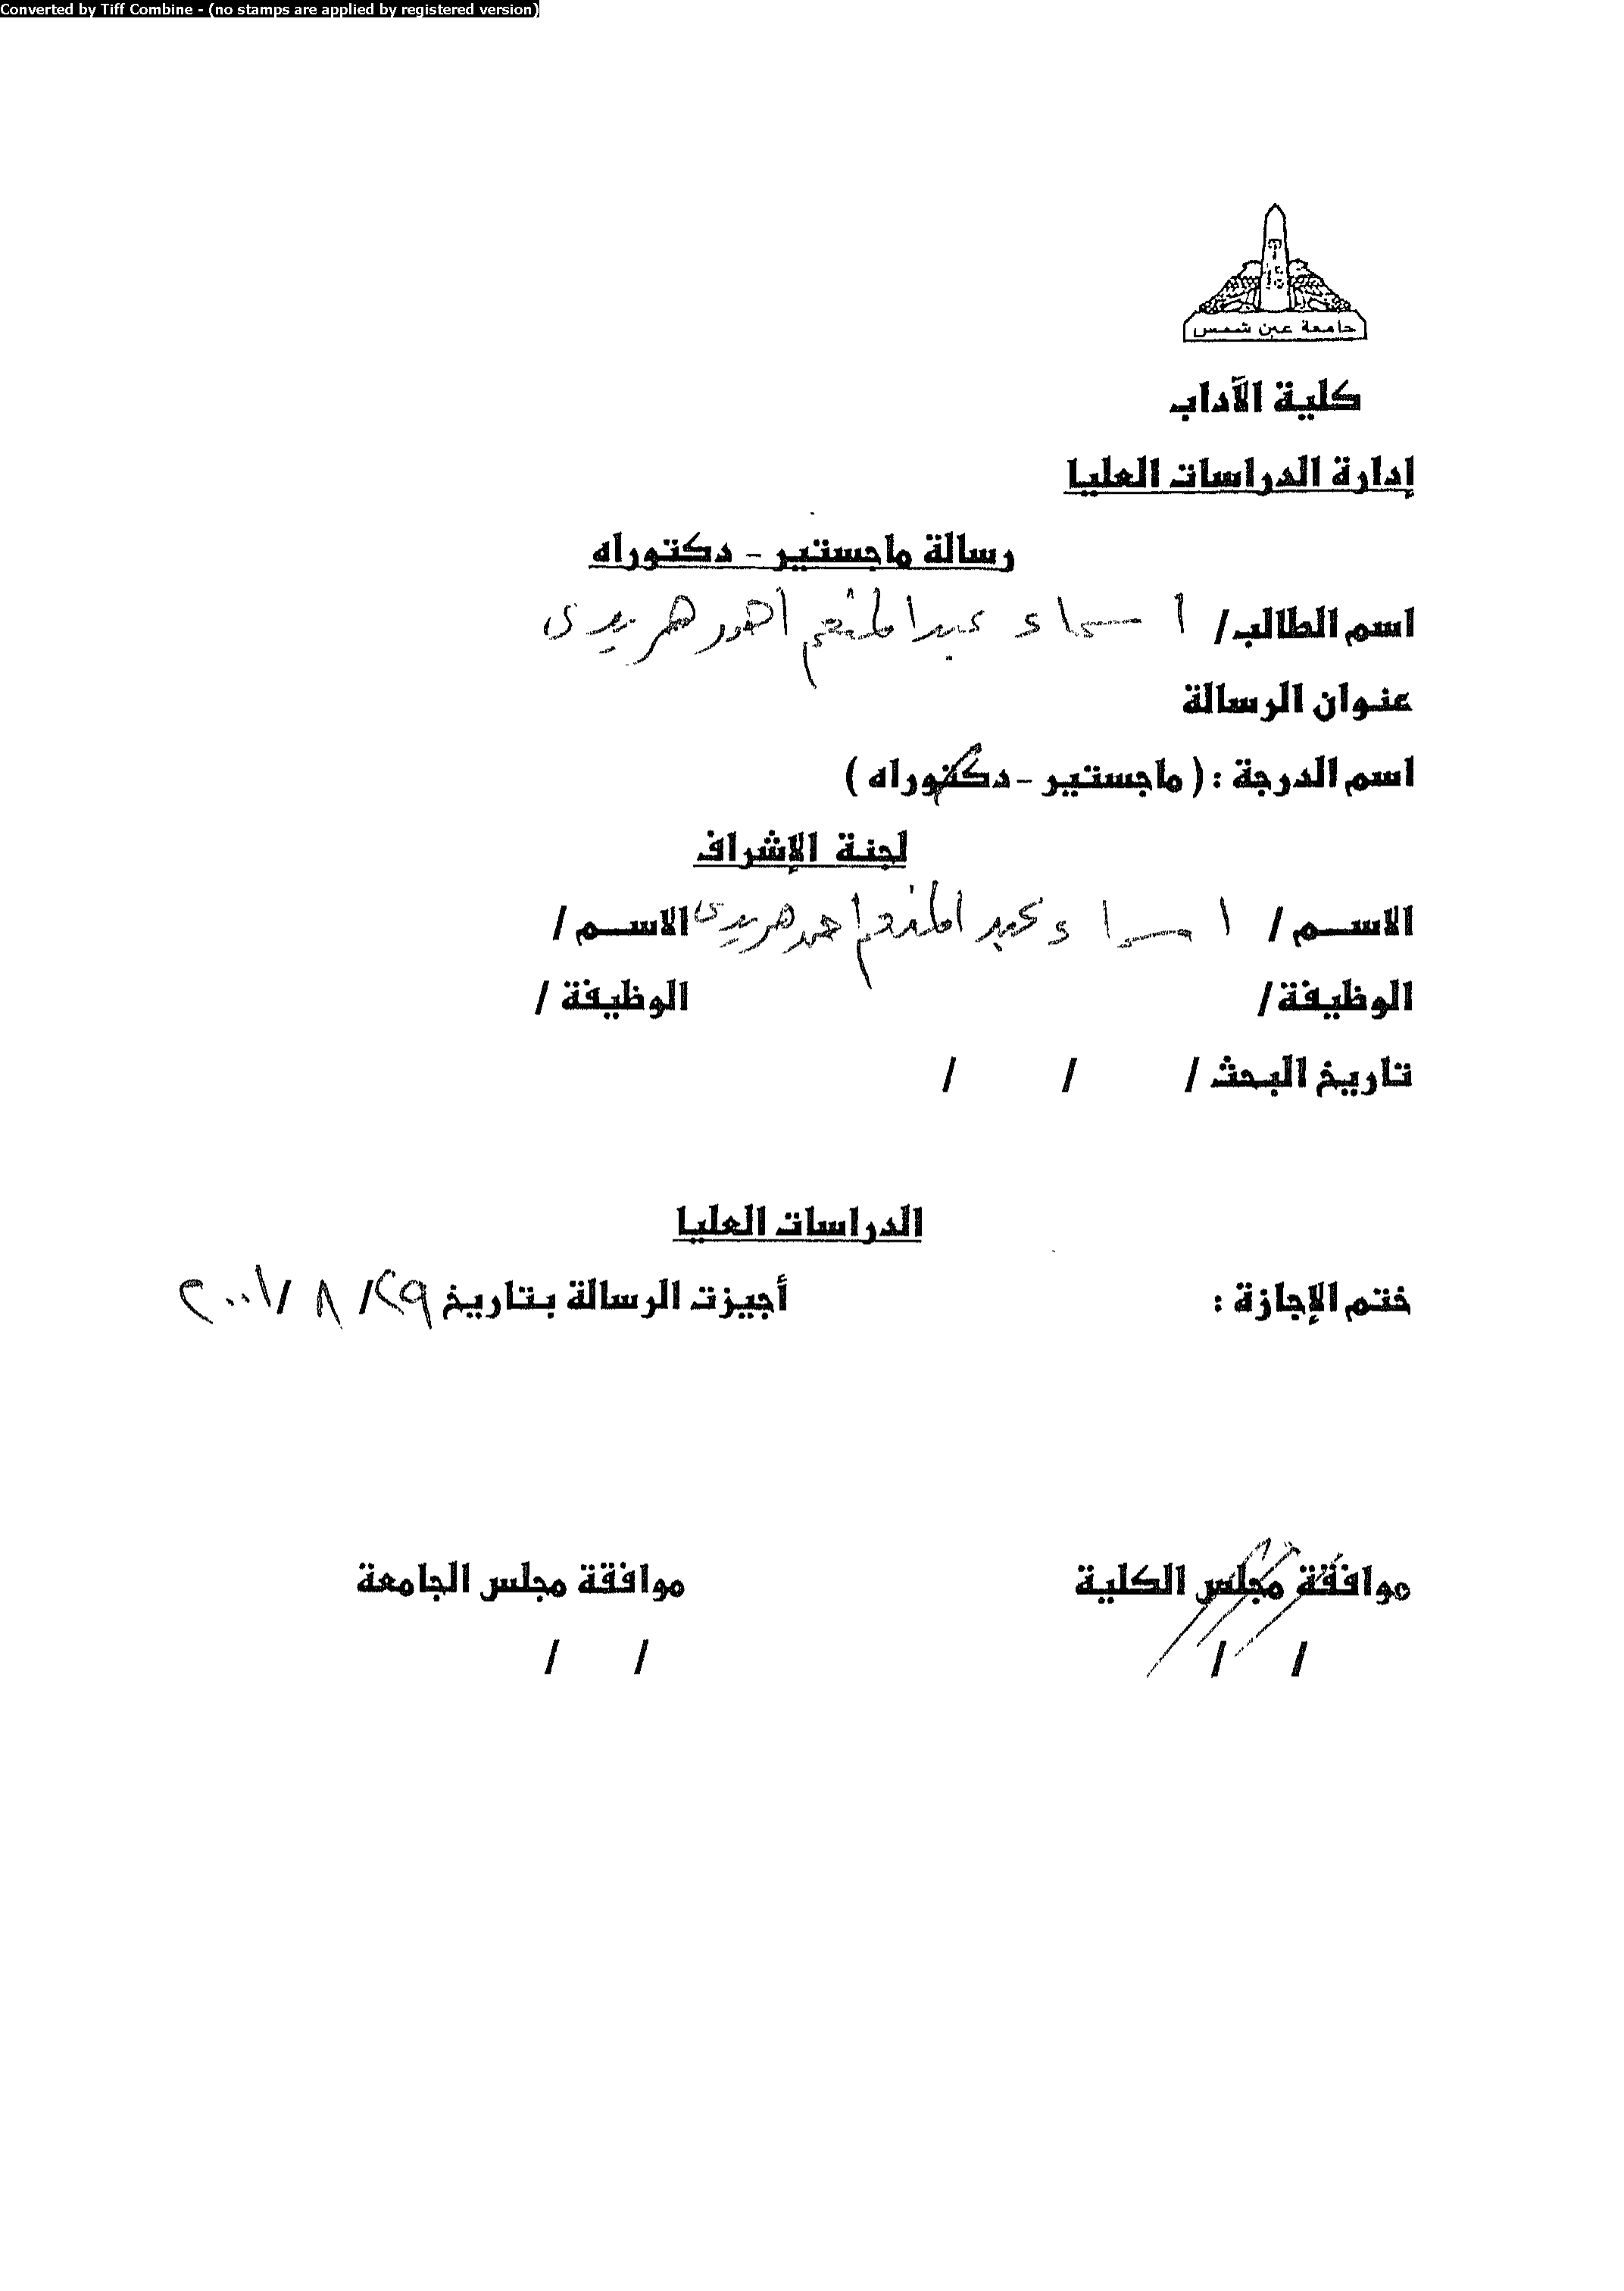 Converted by Tiff Combine - (no stamps are applied by registered version)
جامعة عين شمس
كلية الآداب
إدارة الدراسات العليا
رسالة ماجستير - دكتوراه
اسم الطالب/ أسماء عبد المنعم أحمد هريدى
عنوان الرسالة
اسم الدرجة : ( ماجستير - دكتوراه )
لجنة الإشراف
الاسم / اسماء عبد المنعم احمد هريدى الاسم /
الوظيفة/ الوظيفة /
تاريخ البحث / / /
الدراسات العليا
ختم الإجازة : أجيزت الرسالة بتاريخ ٢٩/ ٨ /٢٠٠١
موافقة مجلس الكلية موافقة مجلس الجامعة
/ / / /